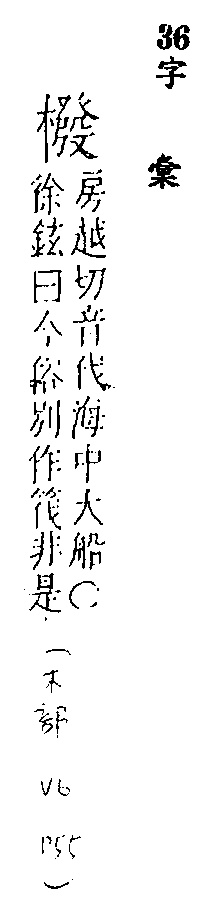 36
字彙
橃
房越切音伐海中大船○
徐鉉曰今俗別作筏非是
(木部 V6 P55)